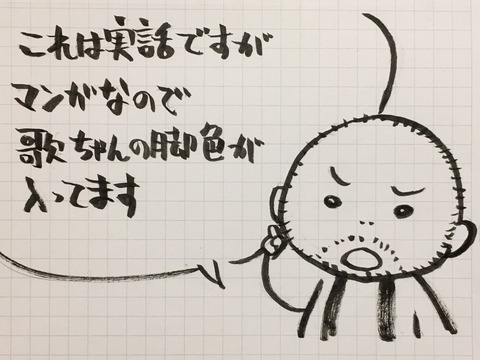 これは実話ですが
マンガなので
歌ちゃんの脚色が
入ってます